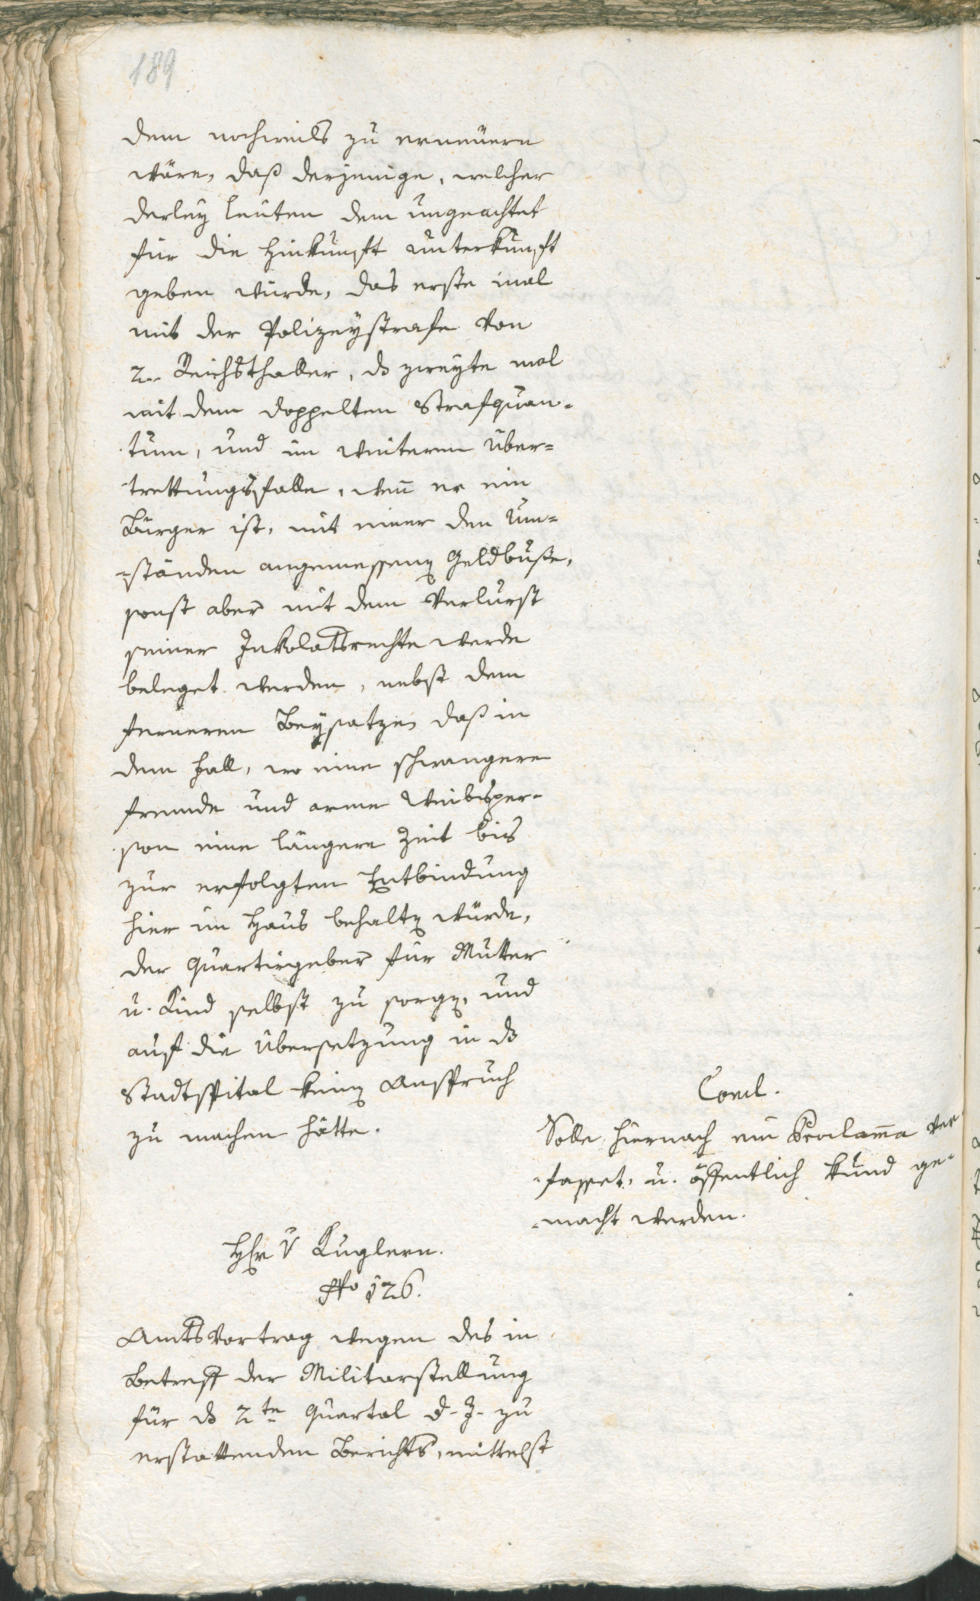 189
dem nochmals zu erneüern
wäre, daß derjenige, welcher
derley Leüten dem ungeachtet
für die Hinkunft unterkunft
geben würde, das erste mal
mit der Polizeystrafe von
2. Reichsthaller, ds zweyte mal
mit dem doppelten Strafquan-
tum, und im weiteren Über-
trettungsfalle, wen̄ er ein
Bürger ist, mit einer den Um-
ständen angemessenen Geldbuße,
sonst aber mit dem Verlurst
seiner Inkolatsrechte werde
beleget werden, nebst dem
ferneren Beysatze, daß in
dem Fall, wo eine schwangere
fremde und arme Weibsper-
son eine längere Zeit bis
zur erfolgten Entbindung
hier im Haus behalten würde,
der Quartirgeber für Mutter
u. Kind selbst zu sorgen, und
auf die Übersetzung in ds
Stadtspital keinen Anspruch
zu machen hätte.
Concl.
Solle hiernach ein Proclam̄a ver
fasset, u. öffentlich kund ge-
macht werden.
Hr v Kuglern.
No 126.
Amtsvortrag wegen des in
Betreff der Militarstellung
für ds 2te Quartal d. J. zu
erstattenden Berichts, mittelst